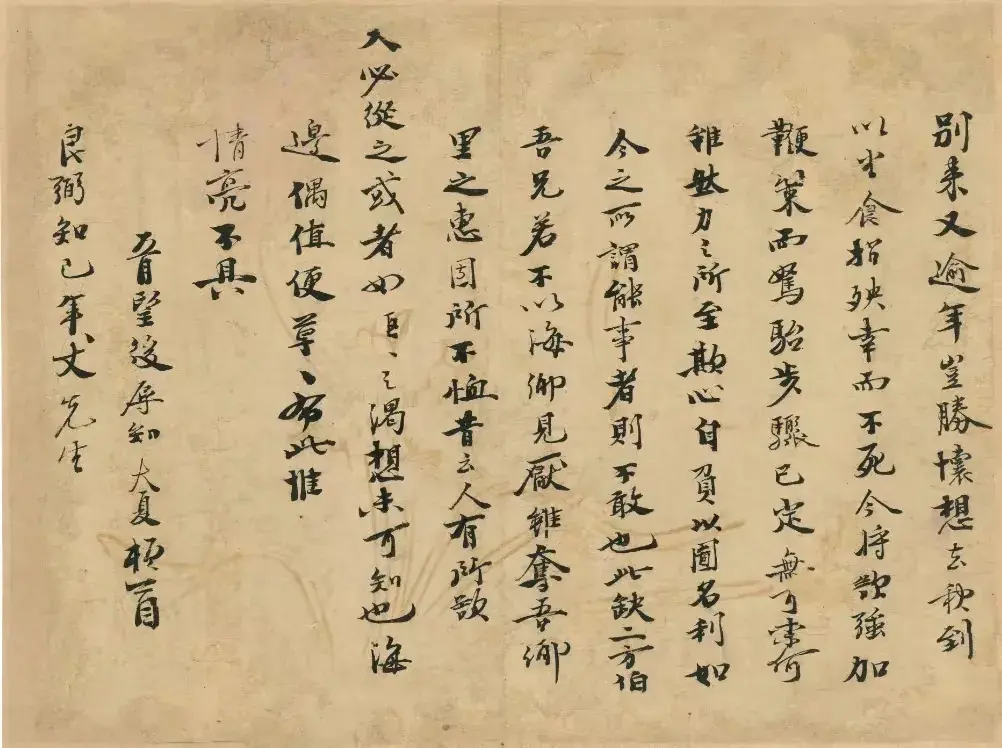 別来又逾年豈勝懷想去秋到
以半食指殃幸而不死今將欲強加
鞭策而駑駘步驟已定無可柰何
雖然力之所至欺心自負以圖名利如
今之所謂能事者則不敢也此缺二方伯
吾兄若不以海鄉見厭雖奪吾鄉
里之惠固所不恤昔云人有所欲
天必從之或者如區〻之渴想未可知也海
邊偶值便草〻布此惟
情亮不具
五月望後辱知大夏頓首
良弼知己年丈先生